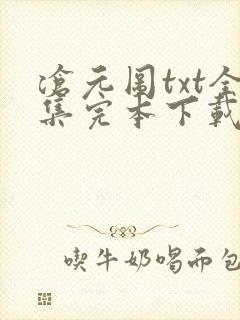 滄元圖txt全
集完本下載
喫牛奶喝面包